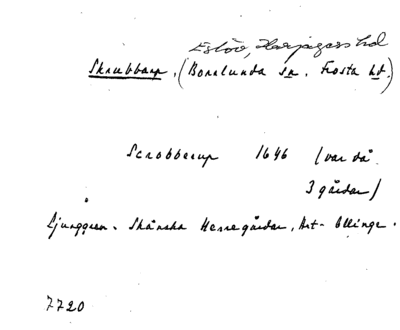 Eslöv, Harjagers hd
Skrubbarp, (Borrlunda sn. Frosta hd.)
Scrobberup 1646 (var då
3 gårdar)
Ljunggren. Skånska Herregårdar, Art. Ellinge.
7720